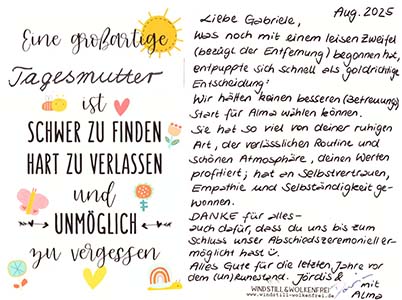 Eine großartige
Tagesmutter
ist
SCHWER ZU FINDEN
HART ZU VERLASSEN
und
UNMÖGLICH
zu vergessen
Aug. 2025
Liebe Gabriele,
Was noch mit einem leisen Zweifel
(bezügl. der Entfernung) begonnen hat,
entpuppte sich schnell als goldrichtige
Entscheidung!
Wir hätten keinen besseren (Betreuungs)
Start für Alma wählen können.
Sie hat so viel von deiner ruhigen
Art, der verlässlichen Routine und
schönen Atmosphäre, deinen Werten
profitiert; hat an Selbstvertrauen,
Empathie und Selbständigkeit ge-
wonnen.
DANKE für alles -
auch dafür, dass du uns bis zum
Schluss unser Abschiedszeremoniell er-
möglicht hast
Alles Gute für die letzten Jahre vor
dem (Un)ruhestand. Jördis &
mit
Alma
WINDSTILL&WOLKENFREI
www.windstill-wolkenfrei.de